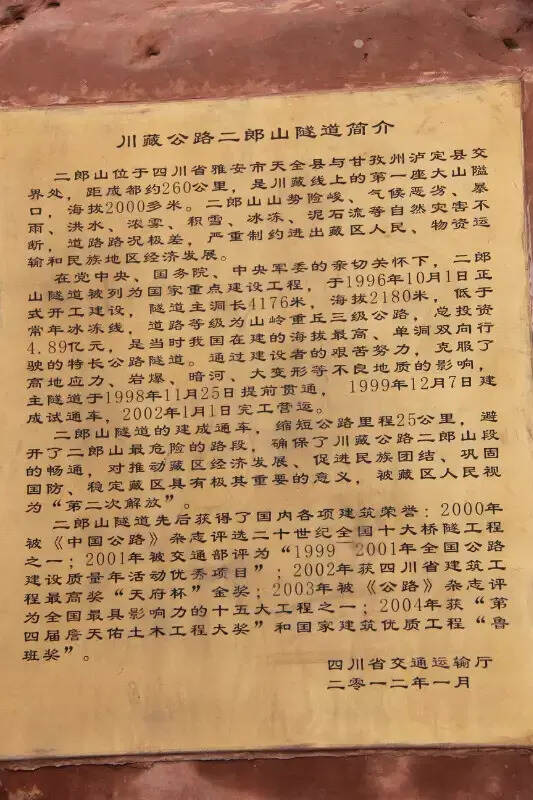 川藏公路二郎山隧道简介
二郎山位于四川省雅安市天全县与甘孜州泸定县交
界处，距成都约260公里，是川藏线上的第一座大山隘
口，海拔2000多米。二郎山山势险峻、气候恶劣、暴
雨、洪水、浓雾、积雪、冰冻、泥石流等自然灾害不
断，道路路况极差，严重制约进出藏区人民、物资运
输和民族地区经济发展。
在党中央、国务院、中央军委的亲切关怀下，二郎
山隧道被列为国家重点建设工程，于1996年10月1日正
式开工建设，隧道主洞长4176米，海拔2180米，低于
常年冰冻线，道路等级为山岭重丘三级公路，总投资
4.89亿元，是当时我国在建的海拔最高、单洞双向行
驶的特长公路隧道。通过建设者的艰苦努力，克服了
高地应力、岩爆、暗河、大变形等不良地质的影响，
主隧道于1998年11月25日提前贯通，1999年12月7日建
成试通车，2002年1月1日完工营运。
二郎山隧道的建成通车，缩短公路里程25公里，避
开了二郎山最危险的路段，确保了川藏公路二郎山段
的畅通，对推动藏区经济发展、促进民族团结、巩固
国防、稳定藏区具有极其重要的意义，被藏区人民视
为“第二次解放”。
二郎山隧道先后获得了国内各项建筑荣誉：2000年
被《中国公路》杂志评选二十世纪全国十大桥隧工程
之一；2001年被交通部评为“1999 2001年全国公路
建设质量年活动优秀项目”；2002年获四川省建筑工
程最高奖“天府杯”金奖；2003年被《公路》杂志评
为全国最具影响力的十五大工程之一；2004年获“第
四届詹天佑土木工程大奖”和国家建筑优质工程“鲁
班奖”。
四川省交通运输厅
二零一二年一月